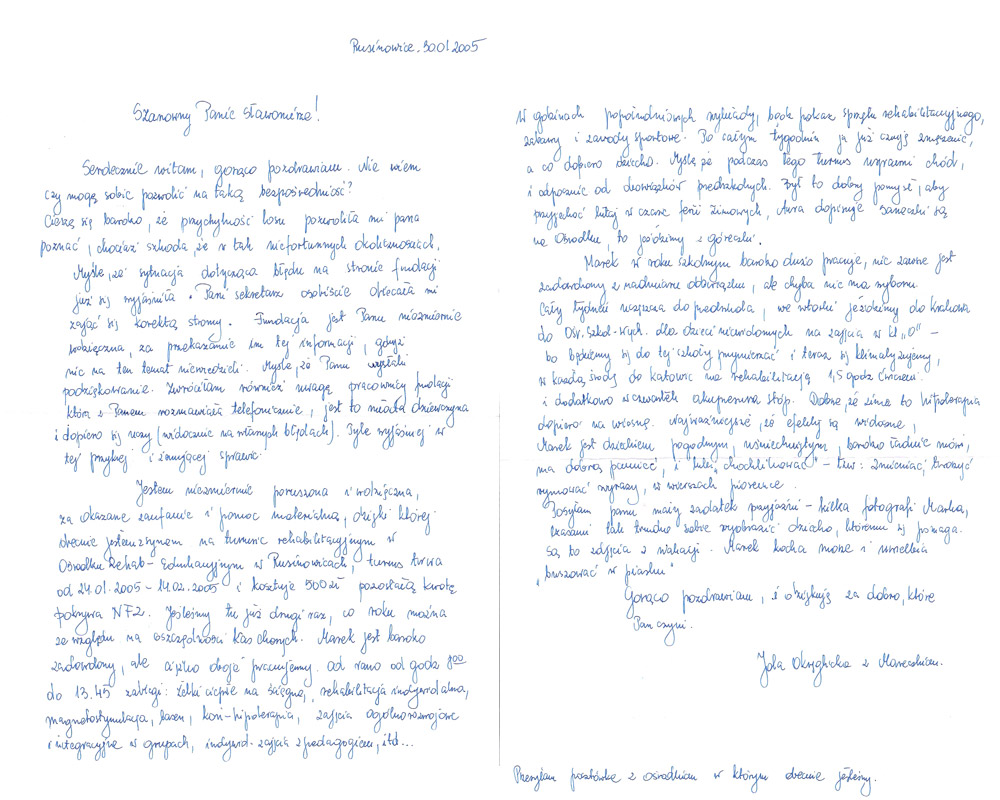 Rusinowice. 30 01 2005
Szanowny Panie Sławomirze!
Serdecznie witam, gorąco pozdrawiam. Nie wiem
czy mogę sobie pozwolić na taką bezpośredniość?
Cieszę się bardzo, że przychylność losu pozwoliła mi pana
poznać, chociaż szkoda, że w tak niefortunnych okolicznościach.
Myślę, że sytuacja dotycząca błędu na stronie fundacji
już się wyjaśniła. Pani sekretarz osobiście obiecała mi
zająć się korektą strony. Fundacja jest Panu niezmiernie
wdzięczna, za przekazanie im tej informacji, gdyż
nic na ten temat nie wiedzieli. Myślę, że Panu wysłali
podziękowanie. Zwróciłam również uwagę pracownicy fundacji
która z Panem rozmawiała telefonicznie, jest to młoda dziewczyna
i dopiero się uczy (widocznie na własnych błędach). Tyle wyjaśnień w
tej przykrej i żenującej sprawie.
Jestem niezmiernie poruszona i wdzięczna,
za okazane zaufanie i pomoc materialną, dzięki której
obecnie jestem z synem na turnusie rehabilitacyjnym w
Ośrodku Rehab- Edukacyjnym w Rusinowicach, turnus trwa
od 24.01.2005 - 14.02.2005 i kosztuje 500zł pozostałą kwotę
pokrywa NFZ. Jesteśmy tu już drugi raz, co roku można
ze względu na oszczędności Kas chorych. Marek jest bardzo
zadowolony, ale ciężko oboje pracujemy. od rano od godz 8.00
do 13.45 zabiegi: ciepłe na ścięgna, rehabilitacja indywidualna,
magnetostymulacja, basen, koń-hipoterapia, zajęcia ogólnorozwojowe
i integracyjne w grupach, indywid. zajęcia z pedagogiem, itd...
W godzinach popołudniowych wykłady, bądź pokaz sprzętu rehabilitacyjnego,
zabawy i zawody sportowe. Po całym tygodniu ja już czuję zmęczenie,
a co dopiero dziecko. Myślę że podczas tego turnus usprawni chód,
i odpocznie od obowiązków przedszkolnych. Był to dobry pomysł, aby
przyjechać tutaj w czasie ferii zimowych, Aura dopisuje saneczki są
na Ośrodku, to jeździmy z góreczki.
Marek w roku szkolnym bardzo dużo pracuje, nie zawsze jest
zadowolony z nadmiaru obowiązku, ale chyba nie ma wyboru.
Cały tydzień uczęszcza do przedszkola, we wtorki jeździmy do Krakowa
do Ośr. Szkol-Wych. dla dzieci niewidomych na zajęcia w kl „0" -
bo będziemy się do tej szkoły przymierzać i teraz się klimatyzujemy,
w każdą środę do Katowic na rehabilitację 1,5 godz ćwiczeń.
i dodatkowo w czwartek akupresura stóp. Dobrze, że zimą to hipoterapia
dopiero na wiosnę. Najważniejsze, że efekty są widoczne,
Marek jest dzieckiem pogodnym, uśmiechniętym, bardzo ładnie mówi,
ma dobrą pamięć, i lubi „chochlikować" - tzw: zmieniać, tworzyć
rymować wyrazy, w wierszach piosence.
Posyłam panu mały zadatek przyjaźni - kilka fotografi Marka,
czasami tak trudno sobie wyobrazić dziecko, któremu się pomaga.
Są to zdjęcia z wakacji. Marek kocha morze i uwielbia
„buszować w piasku"
Gorąco pozdrawiam, i dziękuję za dobro, które
Pan czyni.
Jola z Mareczkiem.
Przesyłam pocztówkę z ośrodkiem w którym obecnie jesteśmy.